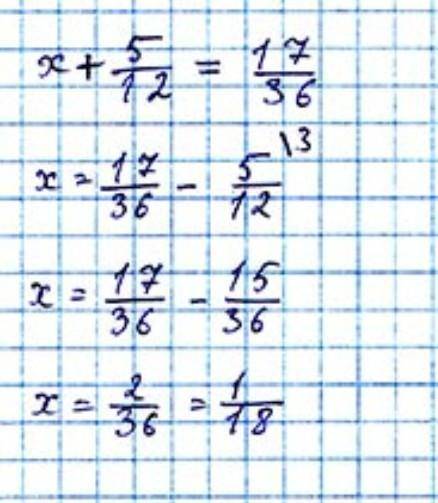 x + 5/12 = 17/36
x = 17/36 - 5/12 \3
x = 17/36 - 15/36
x = 2/36 = 1/18